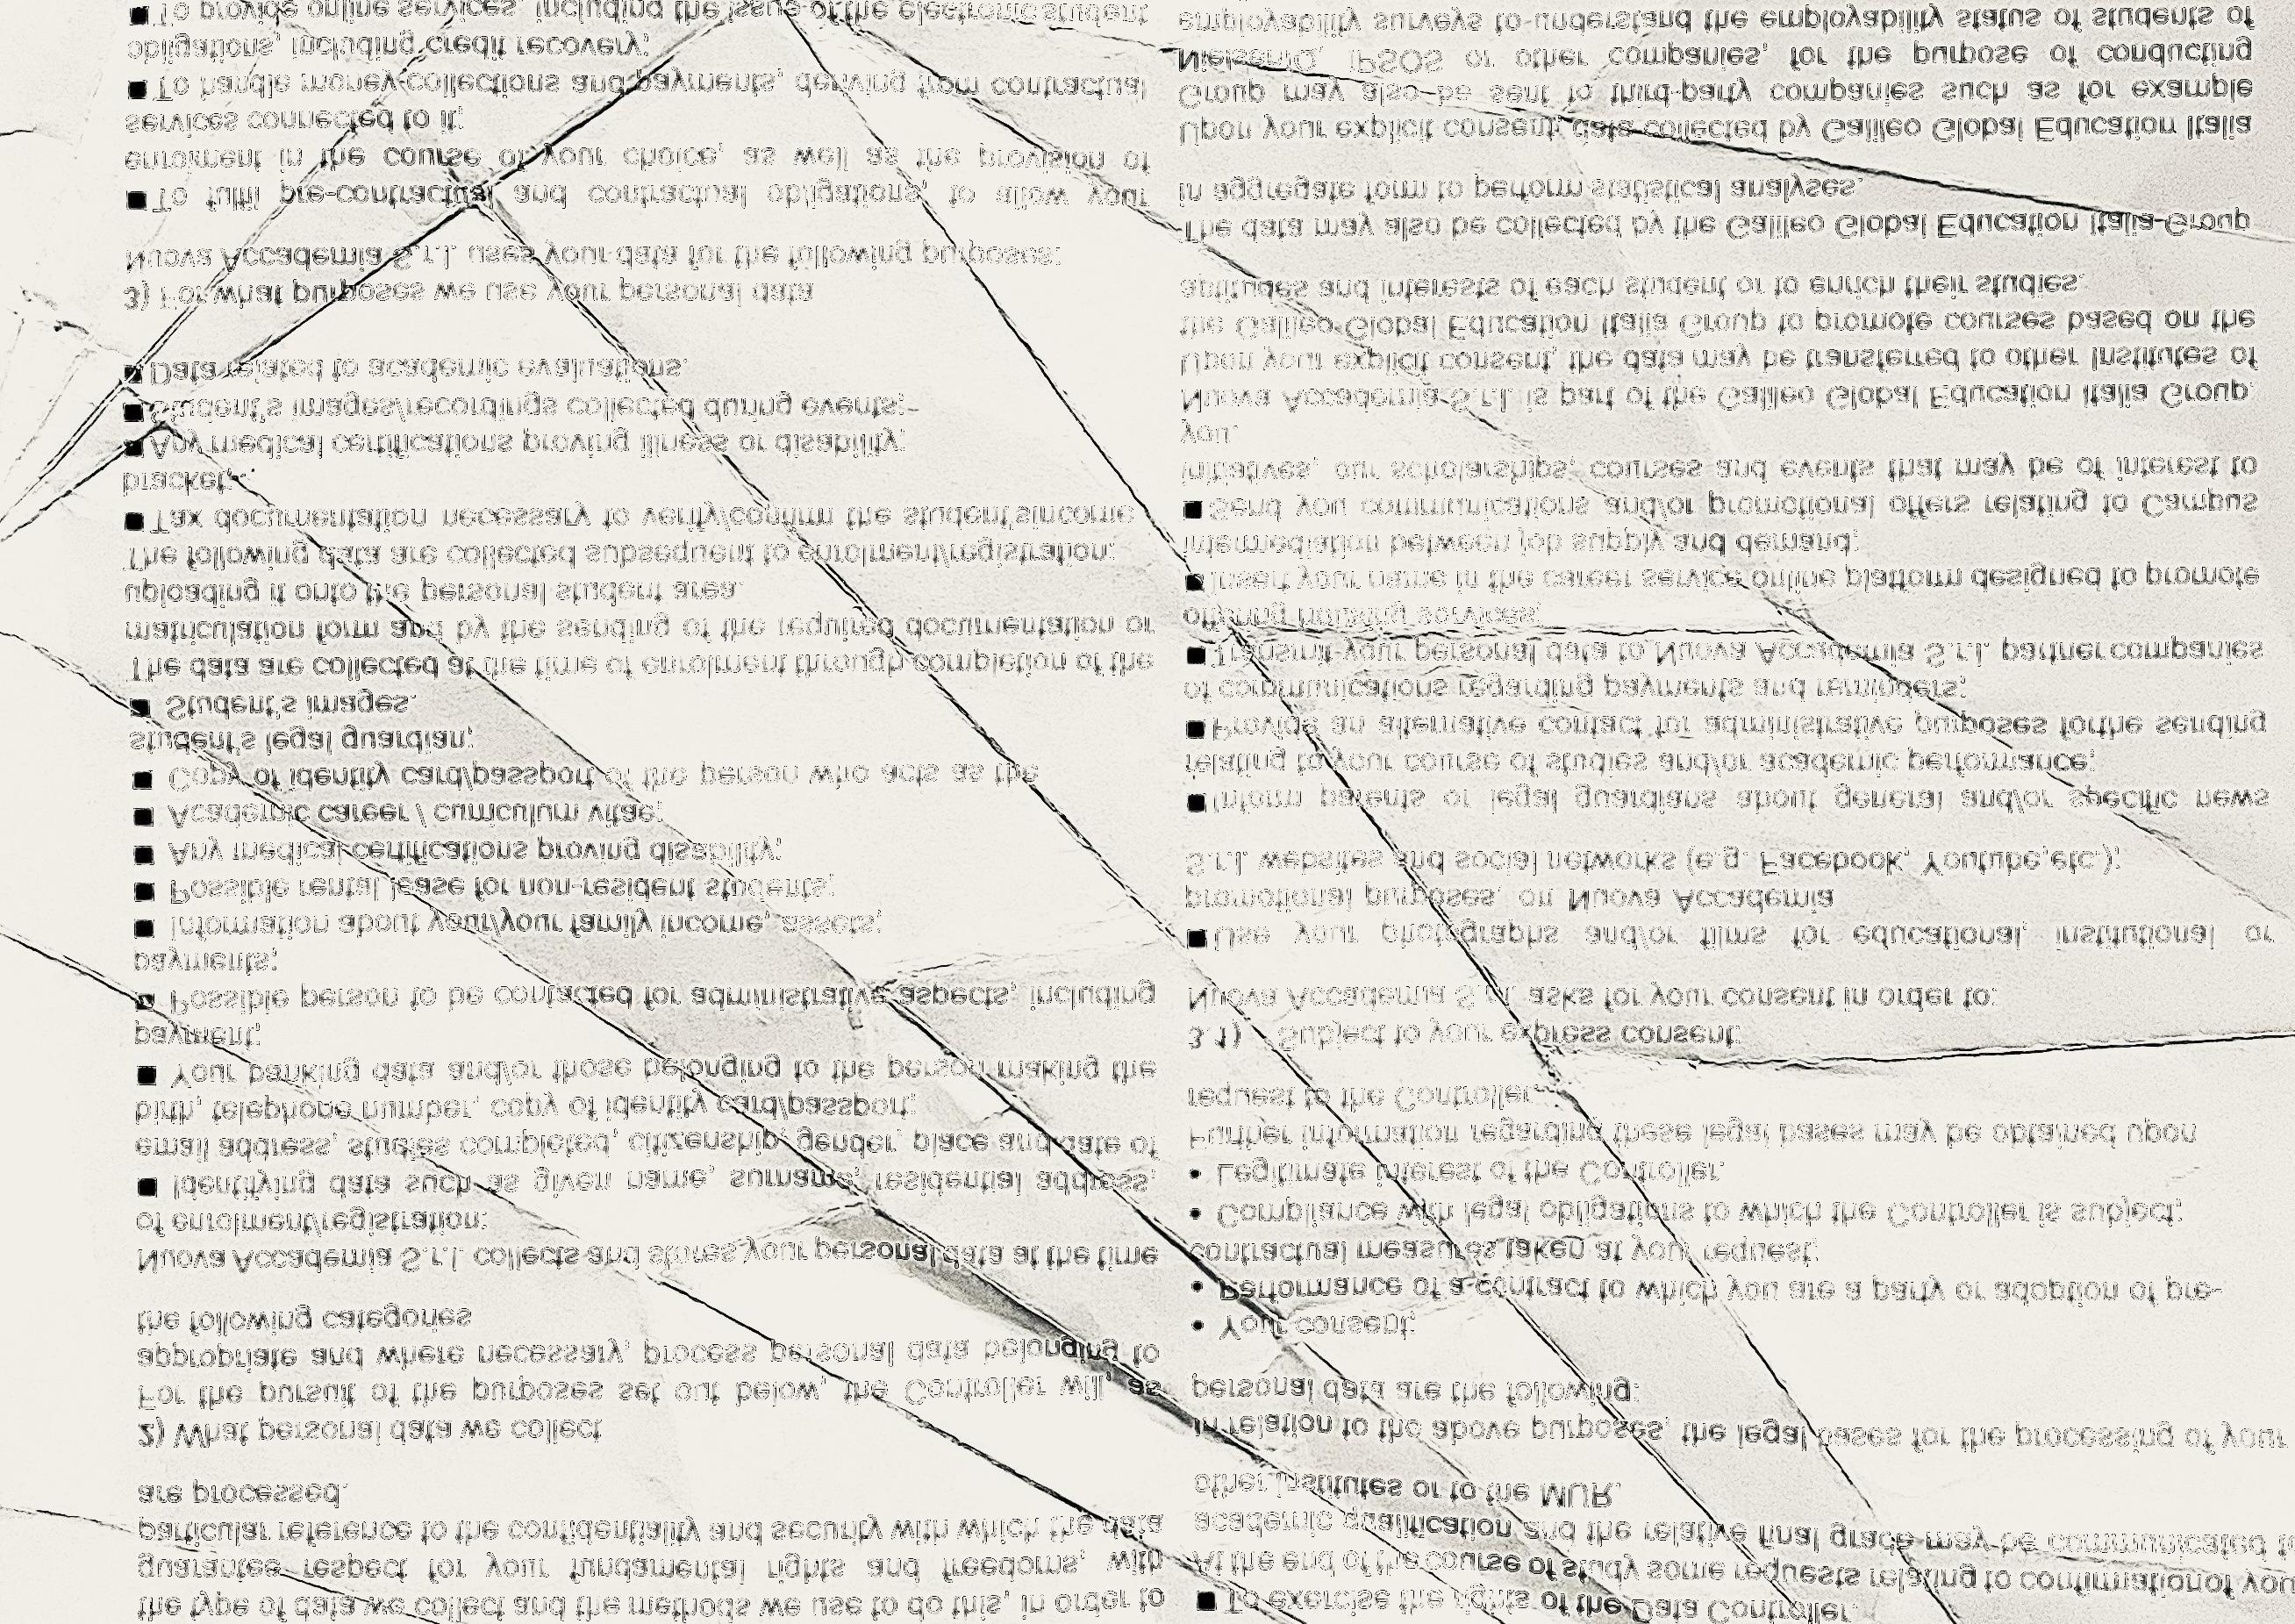 the type of data we collect and the methods we use to do this, in order to
guarantee respect for your fundamental rights and freedoms, with
particular reference to the confidentiality and security with which the data
are processed.
2) What personal data we collect
For the pursuit of the purposes set out below, the Controller will, as
appropriate and where necessary, process personal data belonging to
the following categories
Nuova Accademia S.r.l. collects and stores your personal data at the time
of enrolment/registration:
■ Identifying data such as given name, surname, residential address,
email address, studies completed, citizenship, gender, place and date of
birth, telephone number, copy of identity card/passport;
■ Your banking data and/or those belonging to the person making the
payment;
■ Possible person to be contacted for administrative aspects, including
payments;
■ Information about your/your family income, assets;
■ Possible rental lease for non-resident students;
■ Any medical certifications proving disability;
■ Academic career / curriculum vitae;
■ Copy of identity card/passport of the person who acts as the
student's legal guardian;
■ Student's images.
The data are collected at the time of enrolment through completion of the
matriculation form and by the sending of the required documentation or
uploading it onto the personal student area.
The following data are collected subsequent to enrolment/registration:
■ Tax documentation necessary to verify/confirm the student'sincome
bracket;
■ Any medical certifications proving illness or disability;
■ Student's images/recordings collected during events;
■ Data related to academic evaluations.
3) For what purposes we use your personal data
Nuova Accademia S.r.l. uses your data for the following purposes:
■ To fulfil pre-contractual and contractual obligations, to allow your
enrolment in the course of your choice, as well as the provision of
services connected to it;
■ To handle money collections and payments, deriving from contractual
obligations, including credit recovery;
■ To provide online services, including the issue of the electronic student
■ To exercise the rights of the Data Controller.
At the end of the course of study some requests relating to confirmationof you
academic qualification and the relative final grade may be communicated to
other institutes or to the MUR.
In relation to the above purposes, the legal bases for the processing of your
personal data are the following:
• Your consent;
• Performance of a contract to which you are a party or adoption of pre-
contractual measures taken at your request;
• Compliance with legal obligations to which the Controller is subject;
• Legitimate interest of the Controller.
Further information regarding these legal bases may be obtained upon
request to the Controller.
3.1) Subject to your express consent:
Nuova Accademia S.r.l. asks for your consent in order to:
■ Use your photographs and/or films for educational, institutional or
promotional purposes, on Nuova Accademia
S.r.l. websites and social networks (e.g. Facebook, Youtube,etc.);
■ Inform parents or legal guardians about general and/or specific news
relating to your course of studies and/or academic performance;
■ Provide an alternative contact for administrative purposes forthe sending
of communications regarding payments and reminders;
■ Transmit your personal data to Nuova Accademia S.r.l. partner companies
offering housing services;
■ Insert your name in the career service online platform designed to promote
intermediation between job supply and demand;
■ Send you communications and/or promotional offers relating to Campus
initiatives, our scholarships, courses and events that may be of interest to
you.
Nuova Accademia S.r.l. is part of the Galileo Global Education Italia Group.
Upon your explicit consent, the data may be transferred to other Institutes of
the Galileo Global Education Italia Group to promote courses based on the
aptitudes and interests of each student or to enrich their studies.
The data may also be collected by the Galileo Global Education Italia Group
in aggregate form to perform statistical analyses.
Upon your explicit consent, data collected by Galileo Global Education Italia
Group may also be sent to third-party companies such as for example
NielsenIQ, IPSOS or other companies, for the purpose of conducting
employability surveys to understand the employability status of students of